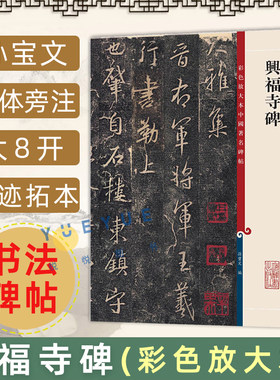 宝文
体旁注
大8开
迹拓本
书法
碑帖
彩色放大本中國著名碑帖
興福寺碑
孫寶文 編
大雅集
晉右軍將軍王羲
行書勒上
世肇自石樓東鎮守
福寺碑(彩色放大